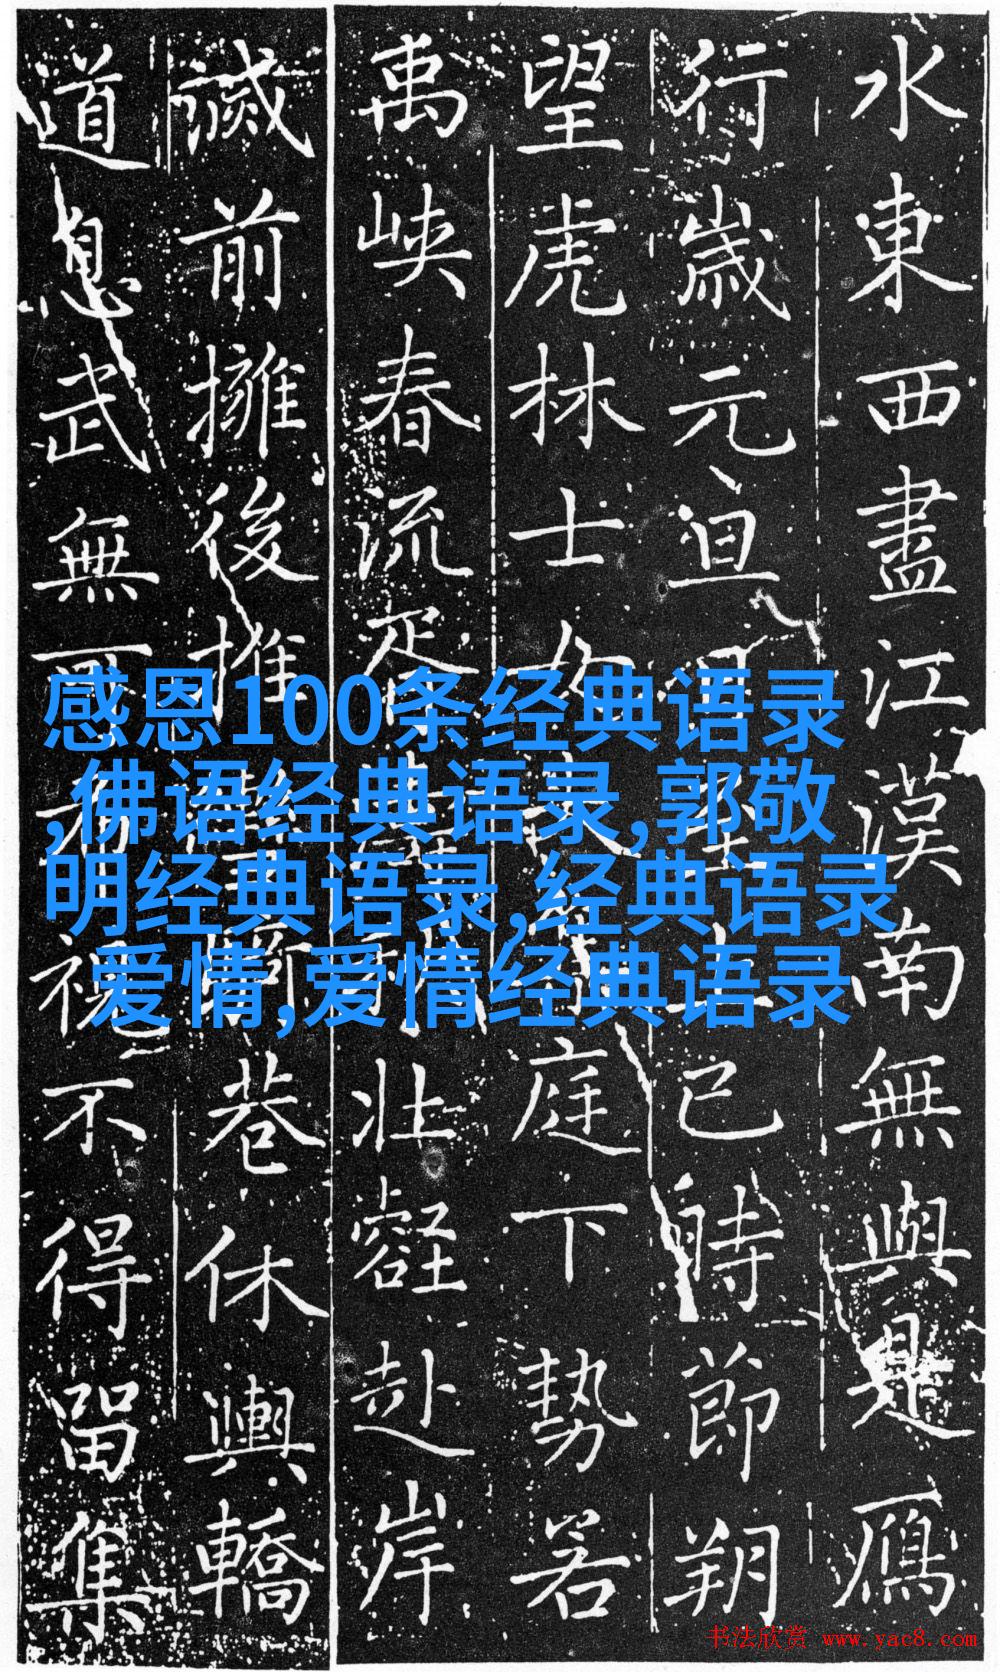 水東西盡江漢南無與是鴈
行歲元旦已時節朔
望虎林士女庭下勢若
禹峽春流壯壑赴岸
前擁後推巷休輿轎
道息武無可不得留集
感恩100条经典语录
,佛语经典语录,郭敬
明经典语录,经典语录
爱情,爱情经典语录
书法欣赏 www.yac8.com